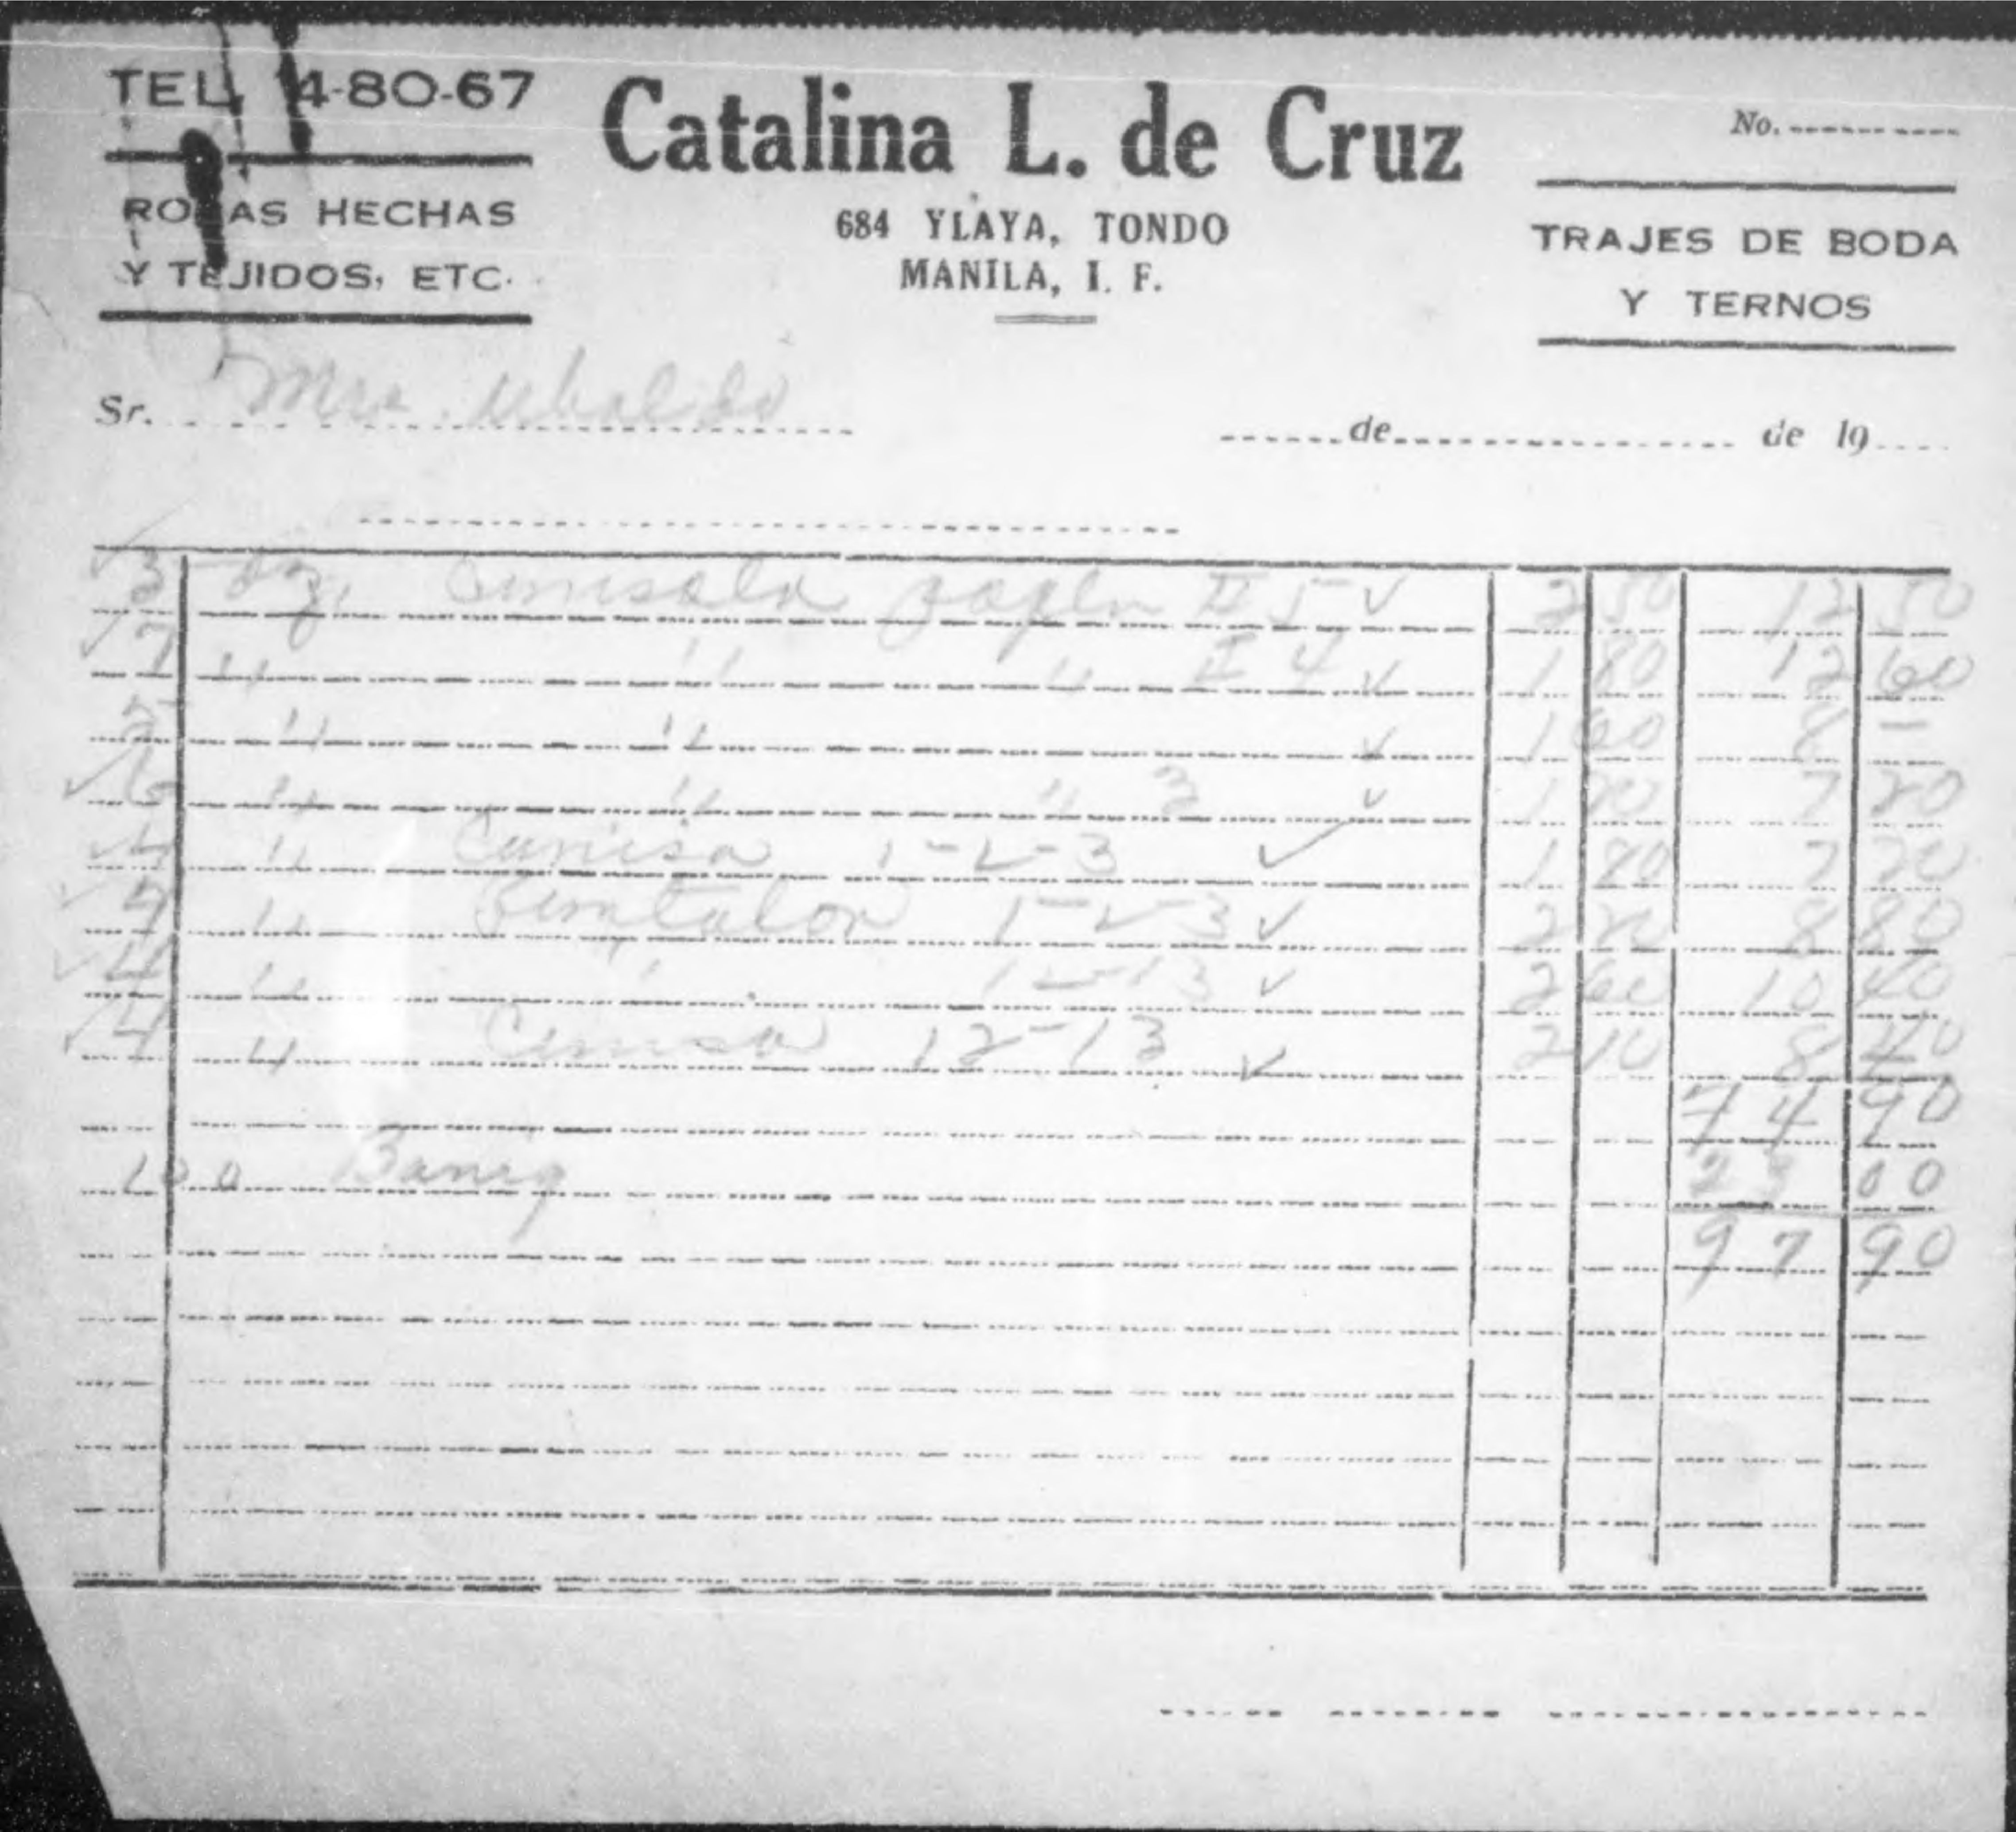 TEL. 4-80-67
Catalina L. de Cruz
No.
ROPAS HECHAS
Y TEJIDOS, ETC.
684 YLAYA, TONDO
MANILA, I. F.
TRAJES DE BODA
Y TERNOS
Sr. Mrs. Ubaldo
de de 19
dz. Camisola II 5 ✓ 2 50 12 50
✓ 7 " " " I 4 ✓ 1 80 12 60
5 " " ✓ 1 60 8 —
✓ 6 " " " 3 ✓ 1 20 7 20
✓ 4 " Camisa 1-2-3 ✓ 1 80 7 20
✓ 4 " Pantalon 1-2-3 ✓ 2 20 8 80
✓ 4 " " 12-13 ✓ 2 60 10 40
✓ 4 " Camisa 12-13 ✓ 2 10 8 40
74 90
100 Banig 23 00
97 90